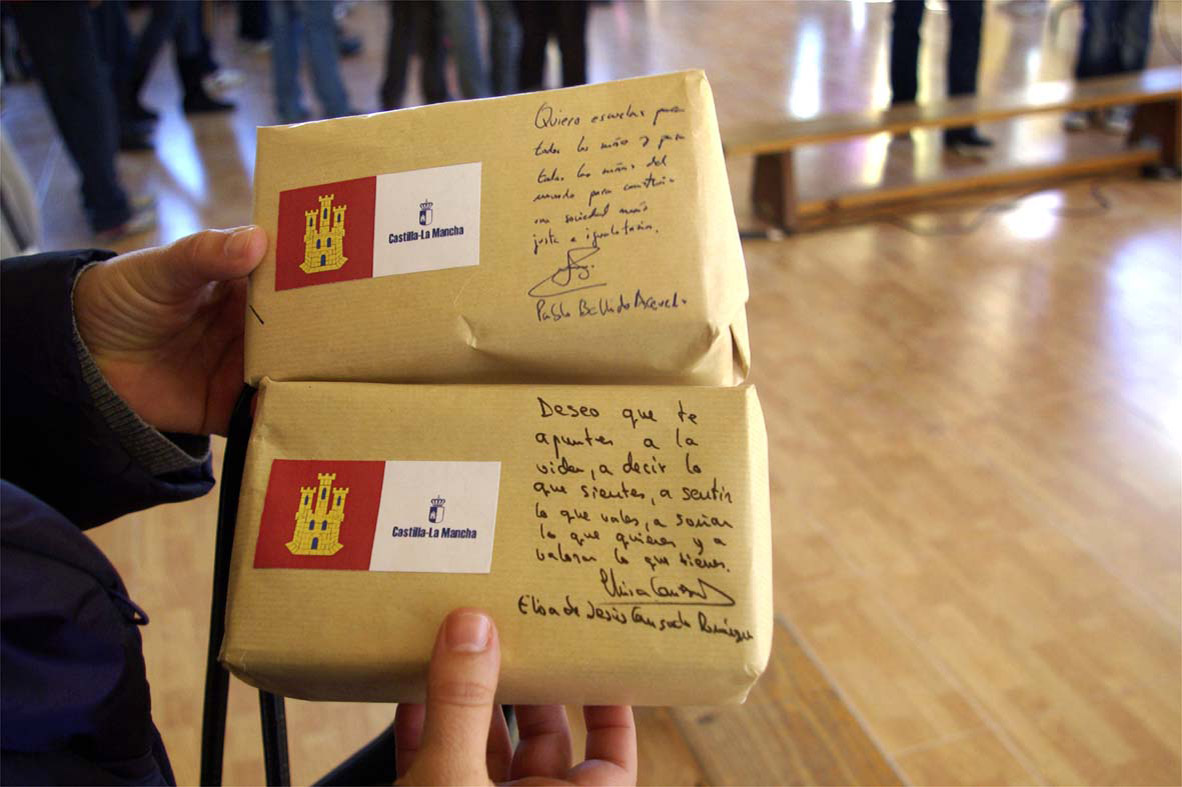 Castilla-La Mancha
Quiero escuelas para
todos los niños y para
todas las niñas del
mundo para construir
una sociedad más
justa e igualitaria.
Pablo Bellido Acevedo
Castilla-La Mancha
Deseo que te
apuntes a la
vida, a decir lo
que sientes, a sentir
lo que vales, a soñar
lo que quieres y a
valorar lo que tienes.
Elisa de Jesús Cansado